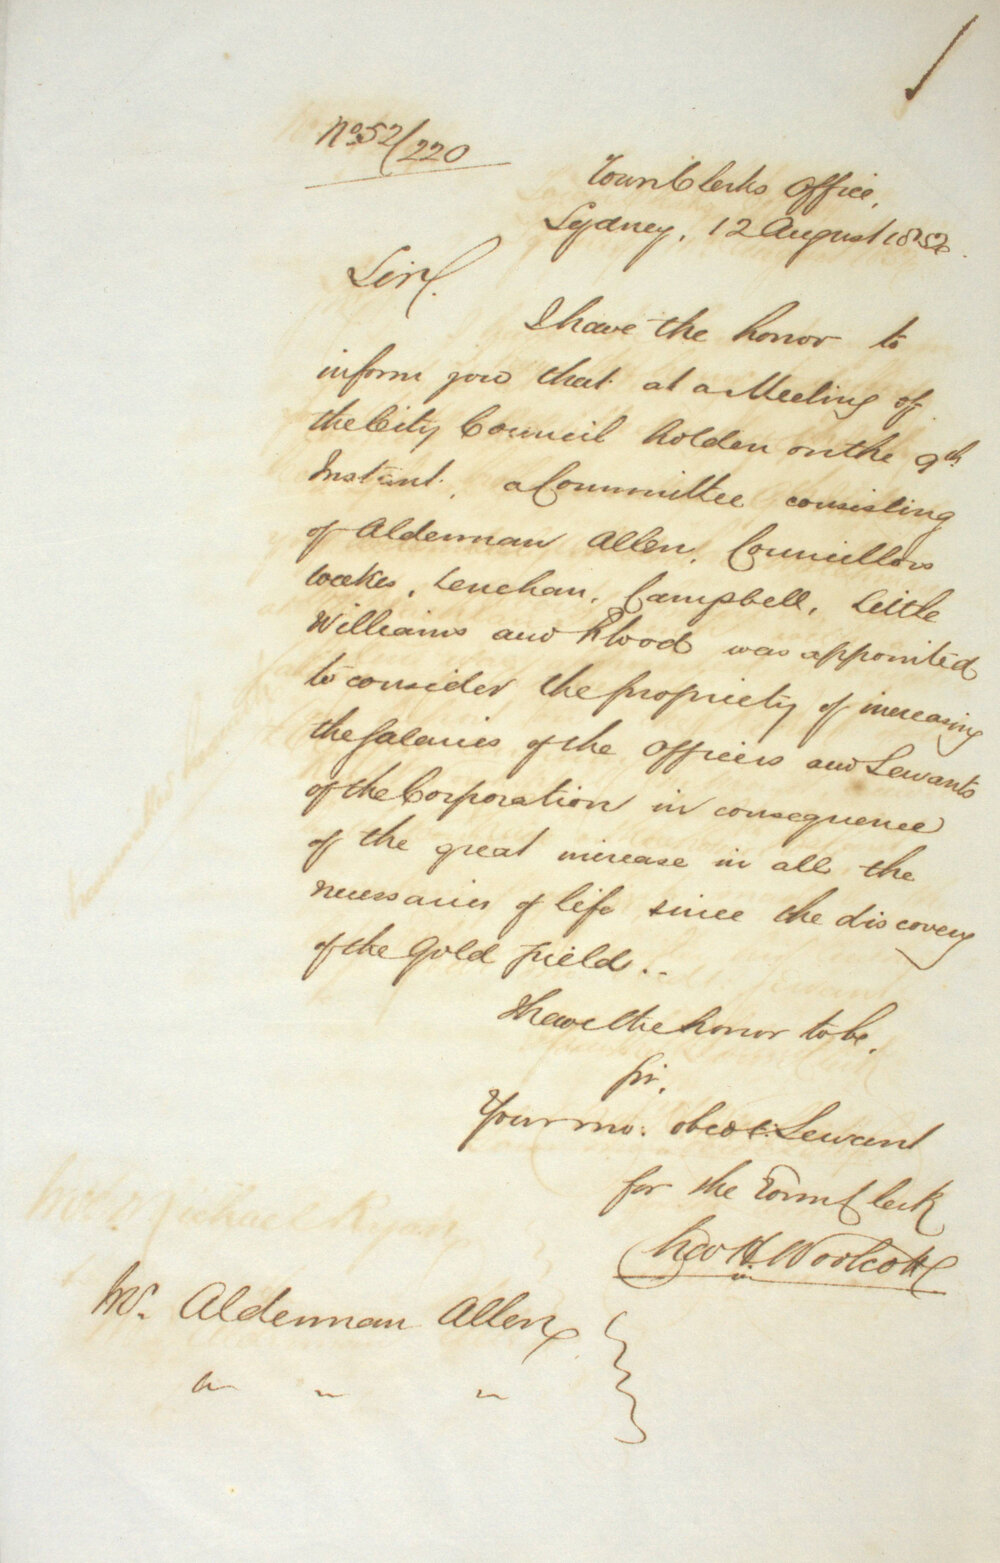 No. 52/220
Town Clerks Office,
Sydney, 12 August 1852.
Sir,
I have the honor to
inform you that at a Meeting of
the City Council holden on the 9th
Instant, a Committee consisting
of Alderman Allen, Councillors
Weekes, Lenehan, Campbell, Little
Williams and Flood was appointed
to consider the propriety of increasing
the Salaries of the Officers and Servants
of the Corporation in consequence
of the great increase in all the
necessaries of life since the discovery
of the Gold Field..
I have the honor to be,
Sir,
Your mo. obedt. Servant
for the Town Clerk
Chas H. Woolcott
Mr. Alderman Allen
" " "